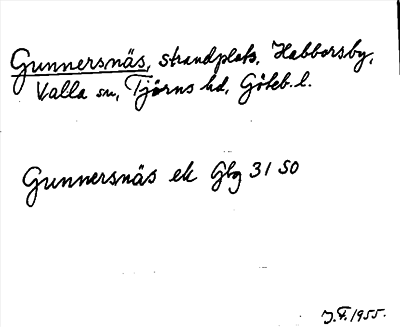 Gunnersnäs, strandplats, Habborsby,
Valla sn, Tjörns hd, Göteb. l.
Gunnersnäs ek Gbg 31 SO
J.F. 1955.